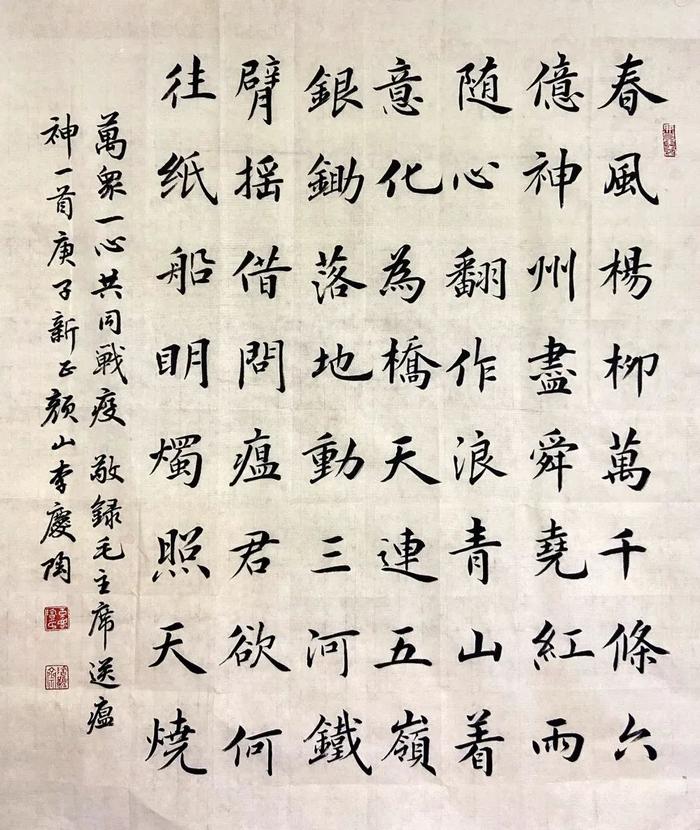 春風楊柳萬千條六
億神州盡舜堯紅雨
随心翻作浪青山着
意化為橋天連五嶺
銀鋤落地動三河鐵
臂摇借問瘟君欲何
往紙船明燭照天燒
萬衆一心共同戰疫敬録毛主席送瘟
神一首庚子新正顏山李慶陶